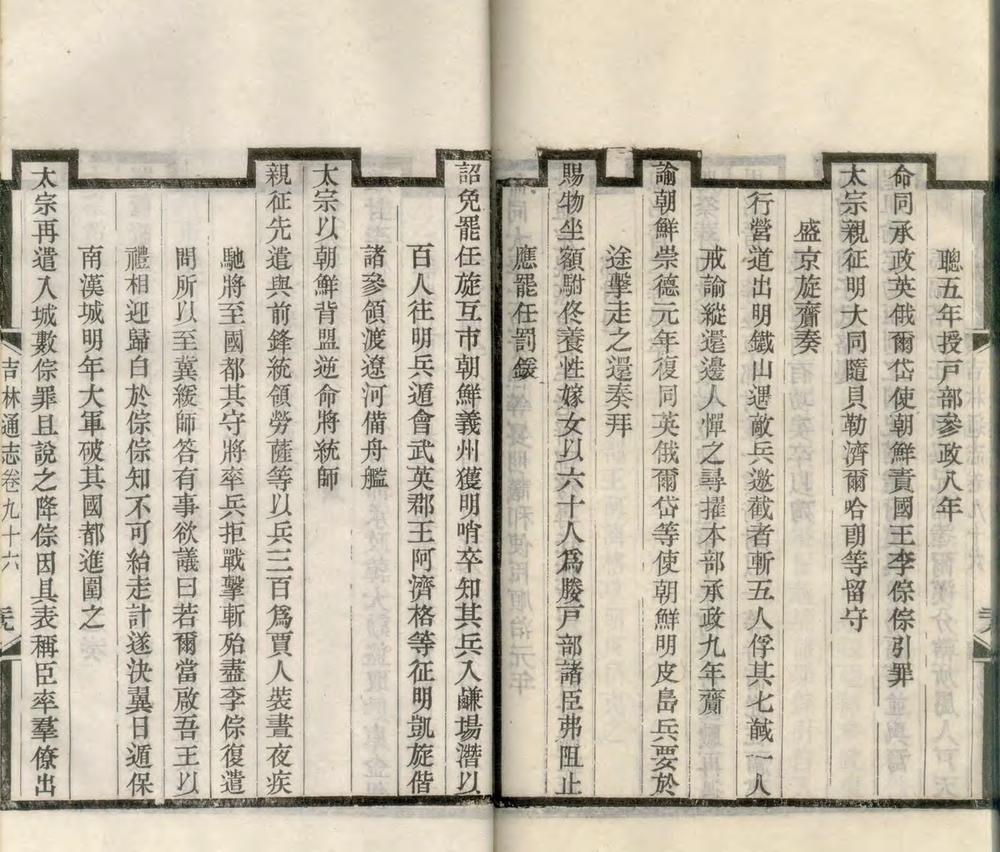 聰五年授戸部參政八年
命同承政英俄爾岱使朝鮮責國王李倧倧引罪
太宗親征明大同隨貝勒濟爾哈朗等留守
盛京旋齎奏
行營道出明鐵山遇敵兵邀截者斬五人俘其七馘一人
戒諭縱還邊人憚之尋擢本部承政九年齎
諭朝鮮崇德元年復同英俄爾岱等使朝鮮明皮島兵要於
途擊走之還奏拜
賜物坐額駙佟養性嫁女以六十人爲媵戸部諸臣弗阻止
應罷任罰鍰
詔免罷任旋互市朝鮮義州獲明哨卒知其兵入鹻場潛以
百人往明兵遁會武英郡王阿濟格等征明凱旋偕
諸參領渡遼河備舟艦
太宗以朝鮮背盟逆命將統師
親征先遣與前鋒統領勞薩等以兵三百爲賈人裝晝夜疾
馳將至國都其守將率兵拒戰擊斬殆盡李倧復遣
問所以至冀緩師答有事欲議曰若爾當啟吾王以
禮相迎歸白於倧倧知不可紿走計遂決翼日遁保
南漢城明年大軍破其國都進圍之
太宗再遣入城數倧罪且說之降倧因具表稱臣率羣僚出
吉林通志卷九十六